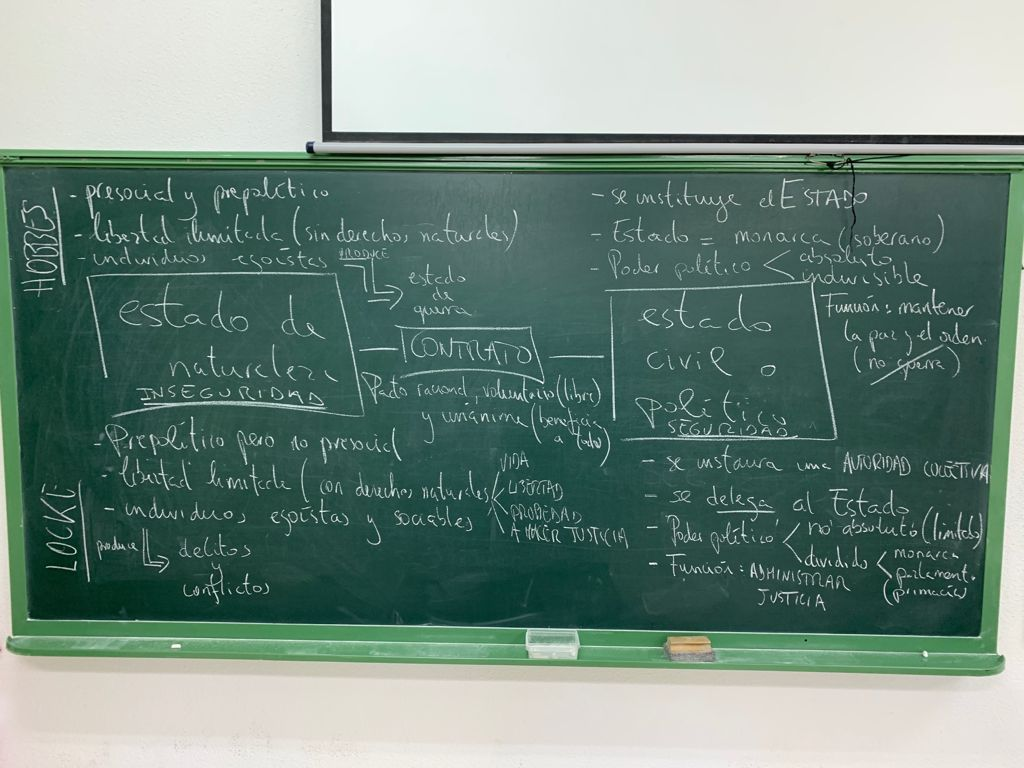 HOBBES
- presocial y prepolítico
- libertad ilimitada (sin derechos naturales)
- individuos egoístas PRODUCE
estado
de
guerra
estado de
naturaleza
INSEGURIDAD
CONTRATO
Pacto racional, voluntario (libre)
y unánime (beneficia
a todos)
- se instituye el ESTADO
- Estado = monarca (soberano)
- Poder político < absoluto
indivisible
Función: mantener
la paz y el orden.
(no guerra)
estado
civil o
político
SEGURIDAD
LOCKE:
- Prepolítico pero no presocial
- libertad limitada (con derechos naturales
VIDA
LIBERTAD
PROPIEDAD
A HACER JUSTICIA
- individuos egoístas y sociables
produce
delitos
y
conflictos
- se instaura una AUTORIDAD COLECTIVA
- se delega al Estado
- Poder político < no absoluto (límites)
dividido < monarca
parlament.
(primacía)
- Función: ADMINISTRAR
JUSTICIA